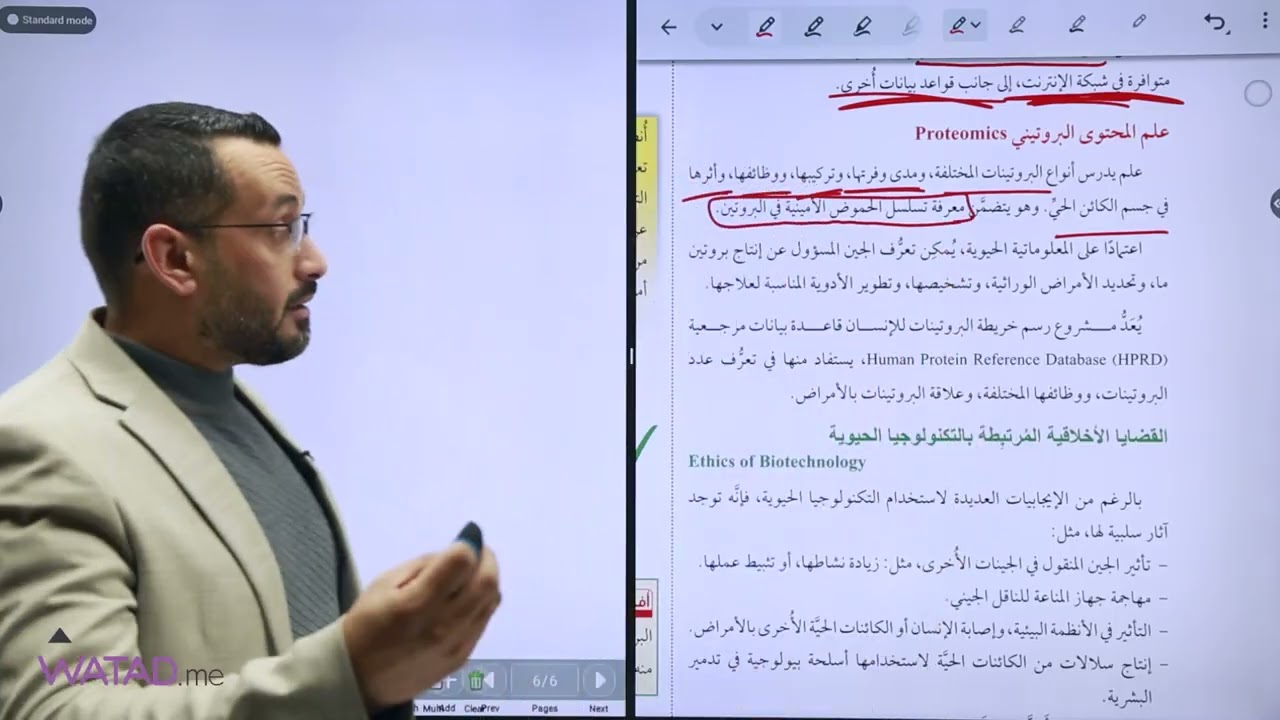 Standard mode
متوافرة في شبكة الإنترنت، إلى جانب قواعد بيانات أُخرى.
علم المحتوى البروتيني Proteomics
علم يدرس أنواع البروتينات المختلفة، ومدى وفرتها، وتركيبها، ووظائفها، وأثرها
في جسم الكائن الحيِّ. وهو يتضمَّن معرفة تسلسل الحموض الأمينية في البروتين.
اعتمادًا على المعلوماتية الحيوية، يُمكِن تعرُّف الجين المسؤول عن إنتاج بروتين
ما، وتحديد الأمراض الوراثية، وتشخيصها، وتطوير الأدوية المناسبة لعلاجها.
يُعَدُّ مـــشروع رسم خريطة البروتينات للإنســان قاعــدة بيانات مرجــعية
Human Protein Reference Database (HPRD)، يستفاد منها في تعرُّف عدد
البروتينات، ووظائفها المختلفة، وعلاقة البروتينات بالأمراض.
القضايا الأخلاقية المُرتبِطة بالتكنولوجيا الحيوية
Ethics of Biotechnology
بالرغم من الإيجابيات العديدة لاستخدام التكنولوجيا الحيوية، فإنَّه توجد
آثار سلبية لها، مثل:
– تأثير الجين المنقول في الجينات الأُخرى، مثل: زيادة نشاطها، أو تثبيط عملها.
– مهاجمة جهاز المناعة للناقل الجيني.
– التأثير في الأنظمة البيئية، وإصابة الإنسان أو الكائنات الحيَّة الأُخرى بالأمراض.
– إنتاج سلالات من الكائنات الحيَّة لاستخدامها أسلحة بيولوجية في تدمير
البشرية.
WATAD.me
6/6
Clear
Prev
Pages
Next